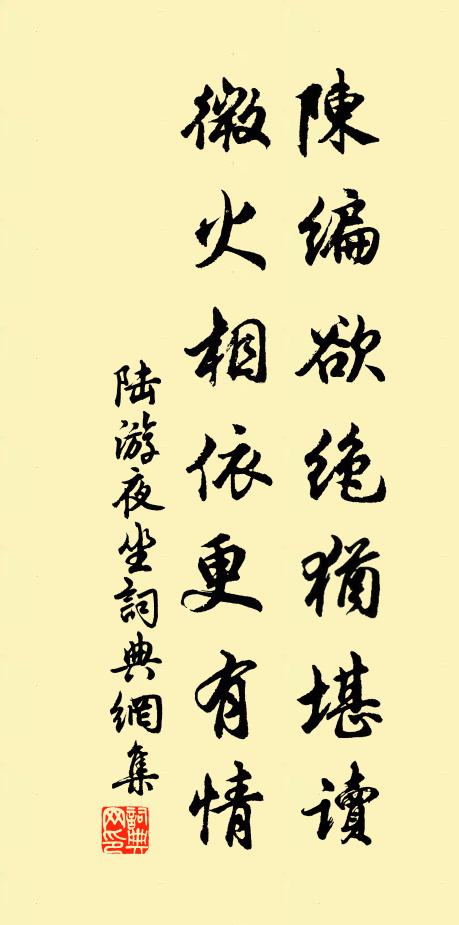 陳編欲絶猶堪讀
微火相依更有情
陆游夜坐詞典網集
詞典网印